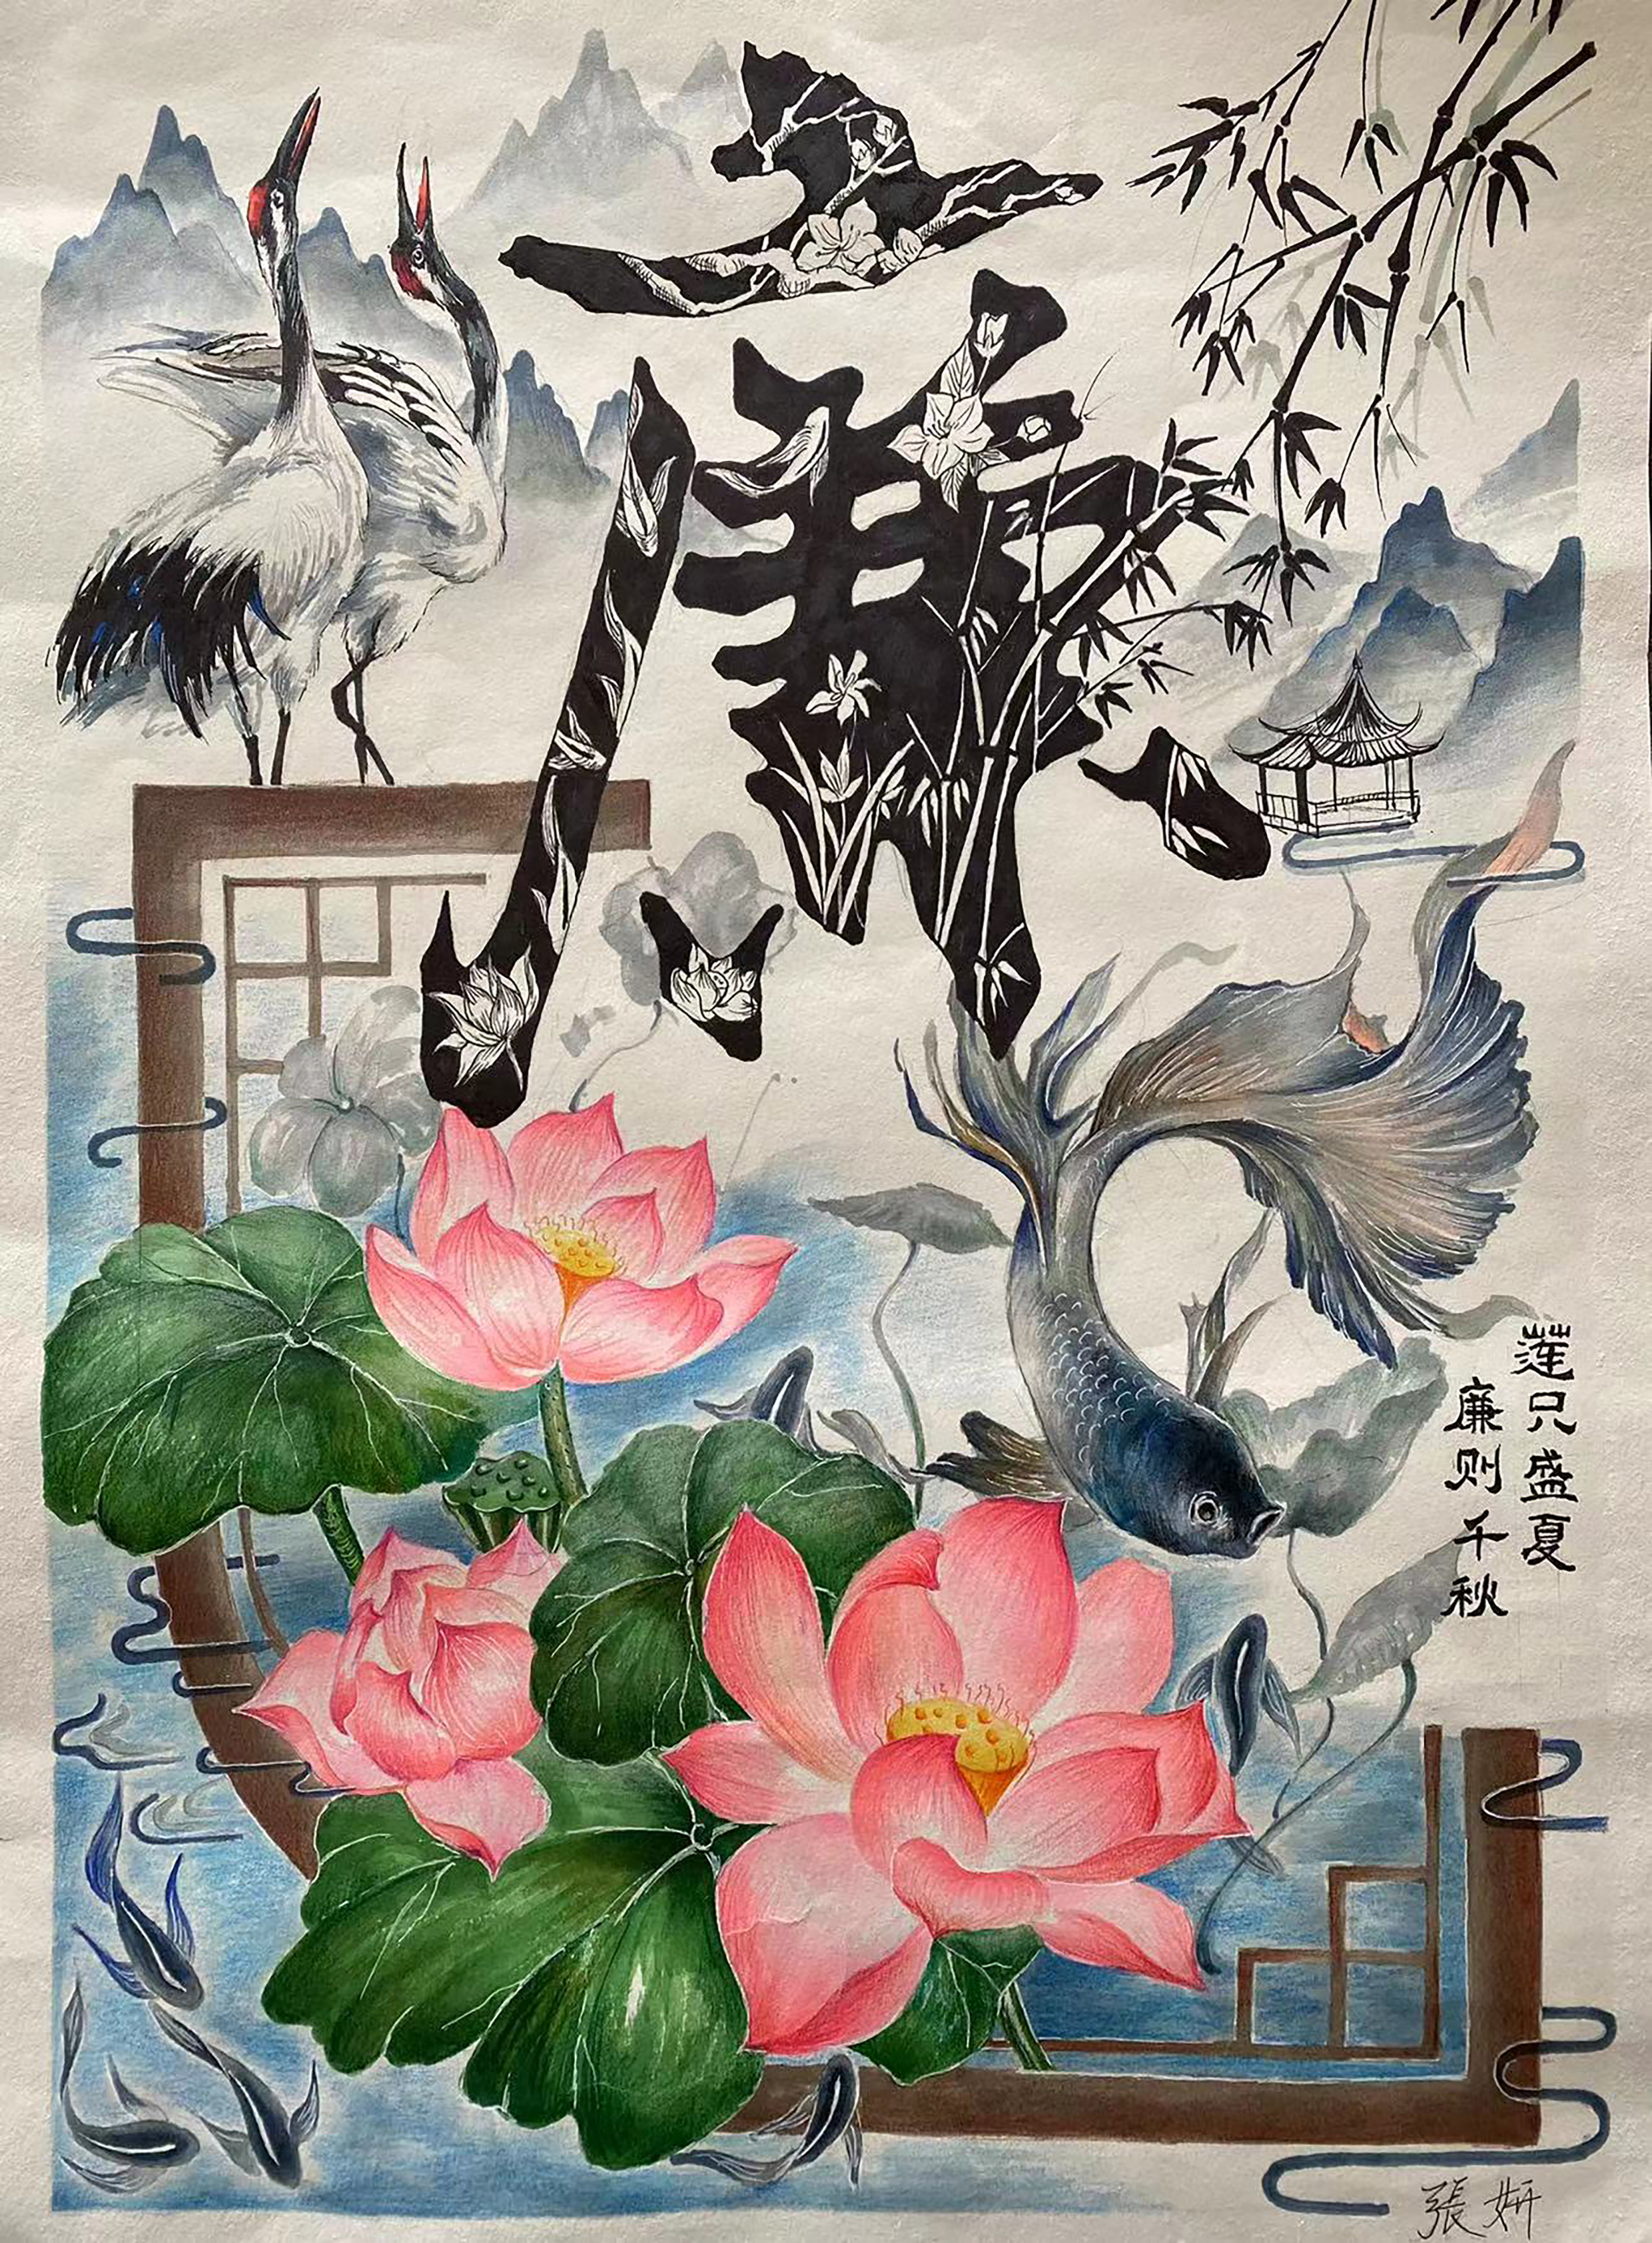 廉
莲只盛夏
廉则千秋
張妍